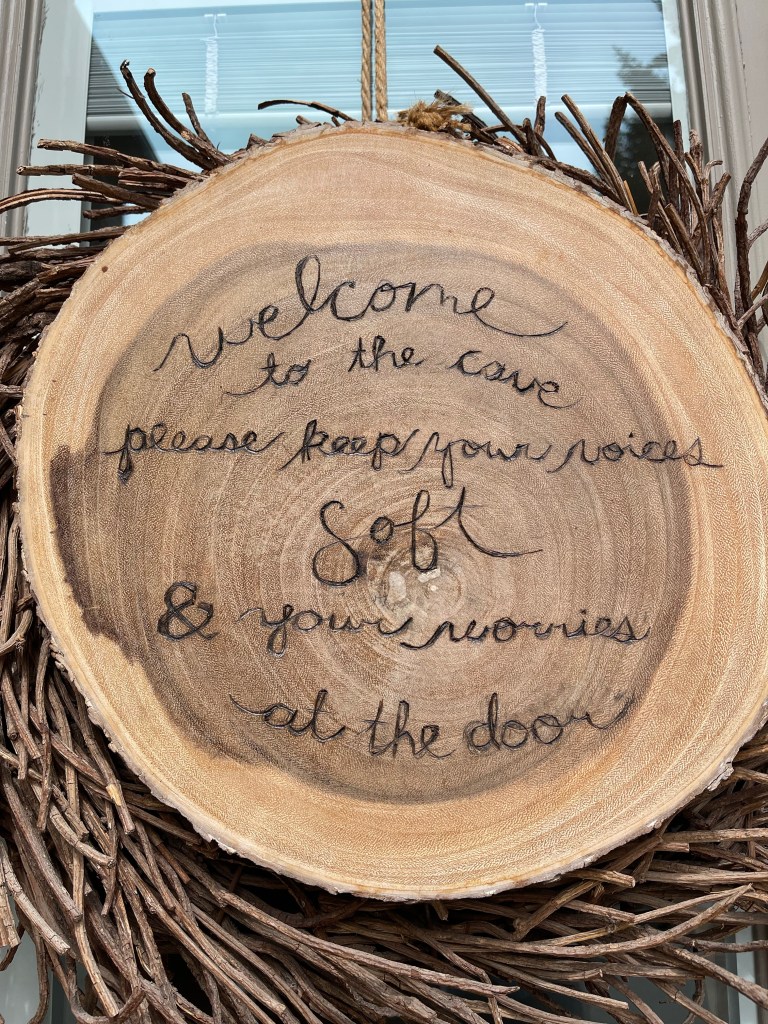 welcome
to the cave
please keep your voices
soft
& your worries
at the door